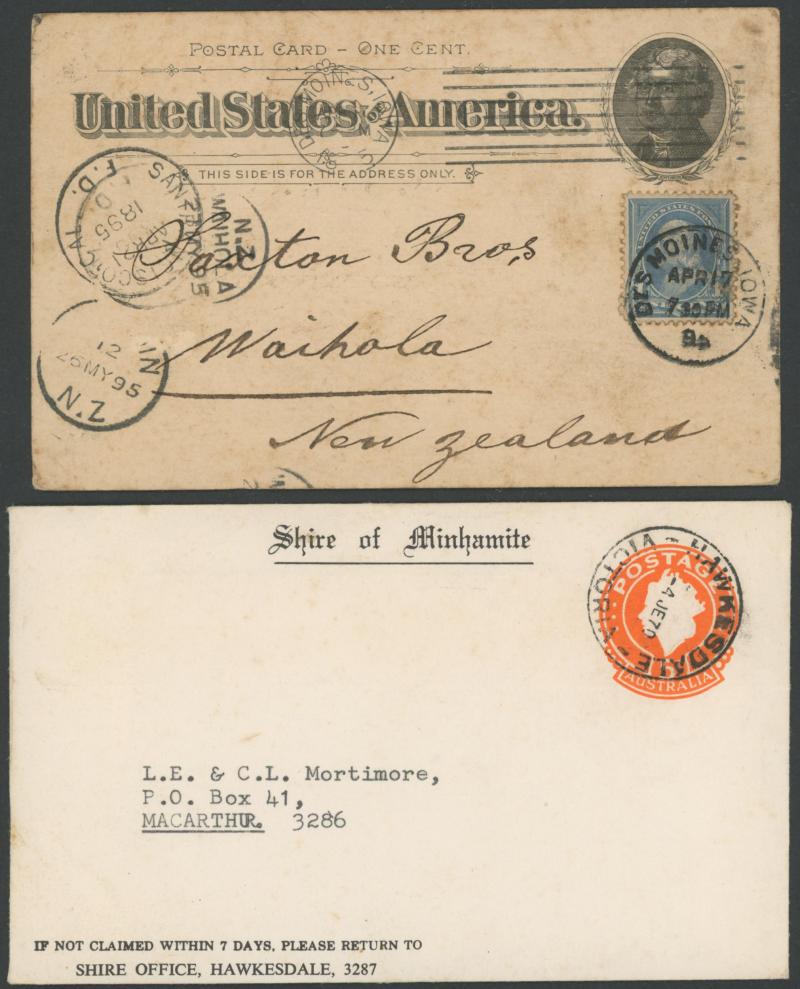 POSTAL CARD - ONE CENT.
United States of America.
THIS SIDE IS FOR THE ADDRESS ONLY.
DES MOINES, IOWA
SAN FRANCISCO, CAL.
F.D.
1895
WAIHOLA
N.Z.
95
UNITED STATES
DES MOINES IOWA
APR 17
7 30 PM
95
Saxton Bros,
Waihola
New Zealand
12
26 MY 95
N.Z
Shire of Minhamite
POSTAGE
AUSTRALIA
HAWKESDALE - VICTORIA -
-4 JE 70
L.E. & C.L. Mortimore,
P.O. Box 41,
MACARTHUR. 3286
IF NOT CLAIMED WITHIN 7 DAYS, PLEASE RETURN TO
SHIRE OFFICE, HAWKESDALE, 3287